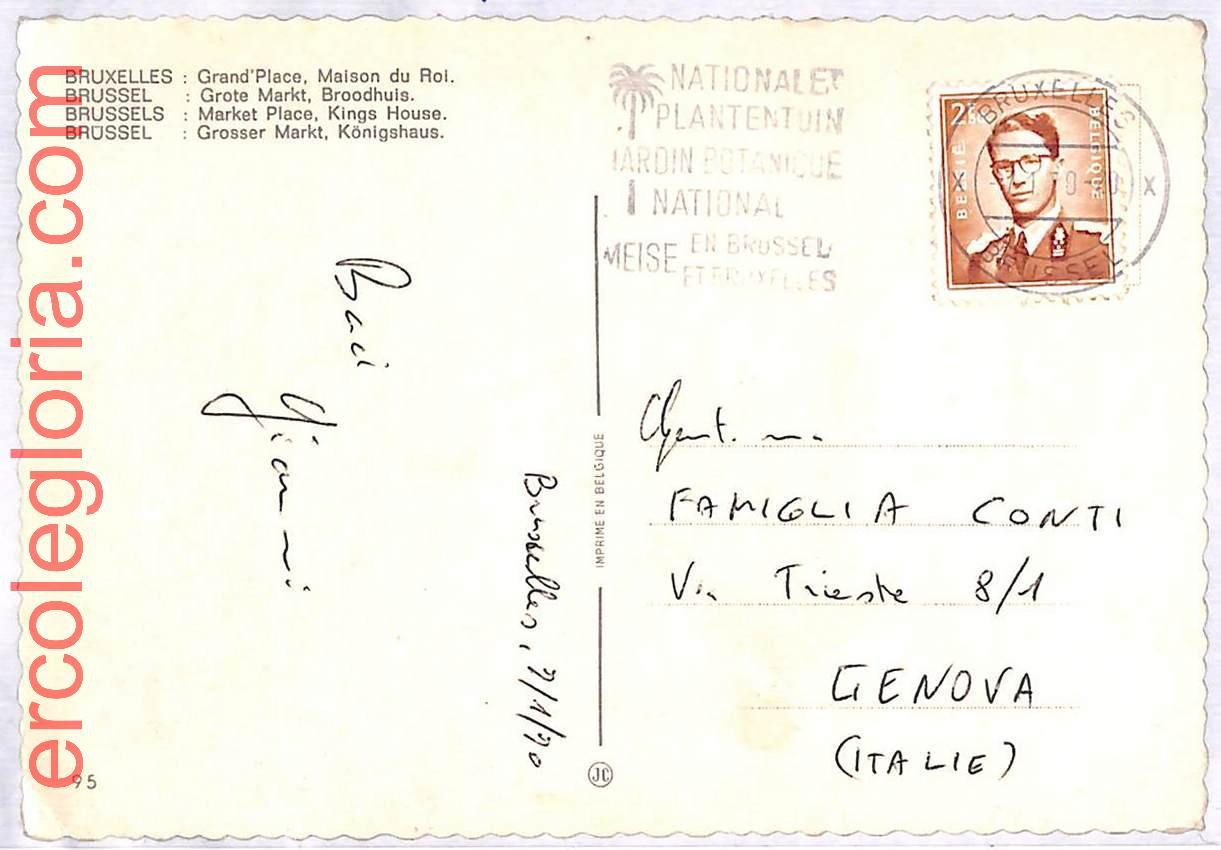 BRUXELLES : Grand'Place, Maison du Roi.
BRUSSEL : Grote Markt, Broodhuis.
BRUSSELS : Market Place, Kings House.
BRÜSSEL : Grosser Markt, Königshaus.
NATIONALE
PLANTENTUIN
JARDIN BOTANIQUE
NATIONAL
MEISE
EN BRUSSEL
ET BRUXELLES
2
BELGIË
BELGIQUE
BRUXELLES
X X
BRUSSEL
Baci
Gianni
Bruxelles, 7/1/70
IMPRIME EN BELGIQUE
JC
FAMIGLIA CONTI
Via Trieste 8/1
GENOVA
(ITALIE)
95
ercolegloria.com